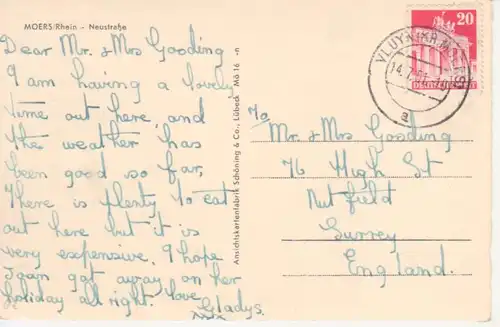 MOERS/Rhein – Neustraße
Dear Mr. & Mrs Gooding
I am having a lovely
time out here, and
the weather has
been good so far,
There is plenty to eat
out here but it is
very expensive. I hope
Joan got away on her
holiday all right. Love
Gladys.
xxx
Mö 16 -n
Ansichtskartenfabrik Schöning & Co., Lübeck
To
Mr. & Mrs Gooding
76 High St
Nutfield
Surrey
England.
20
DEUTSCHE POST
VLUYN (KR. MOERS)
14.7.51
a